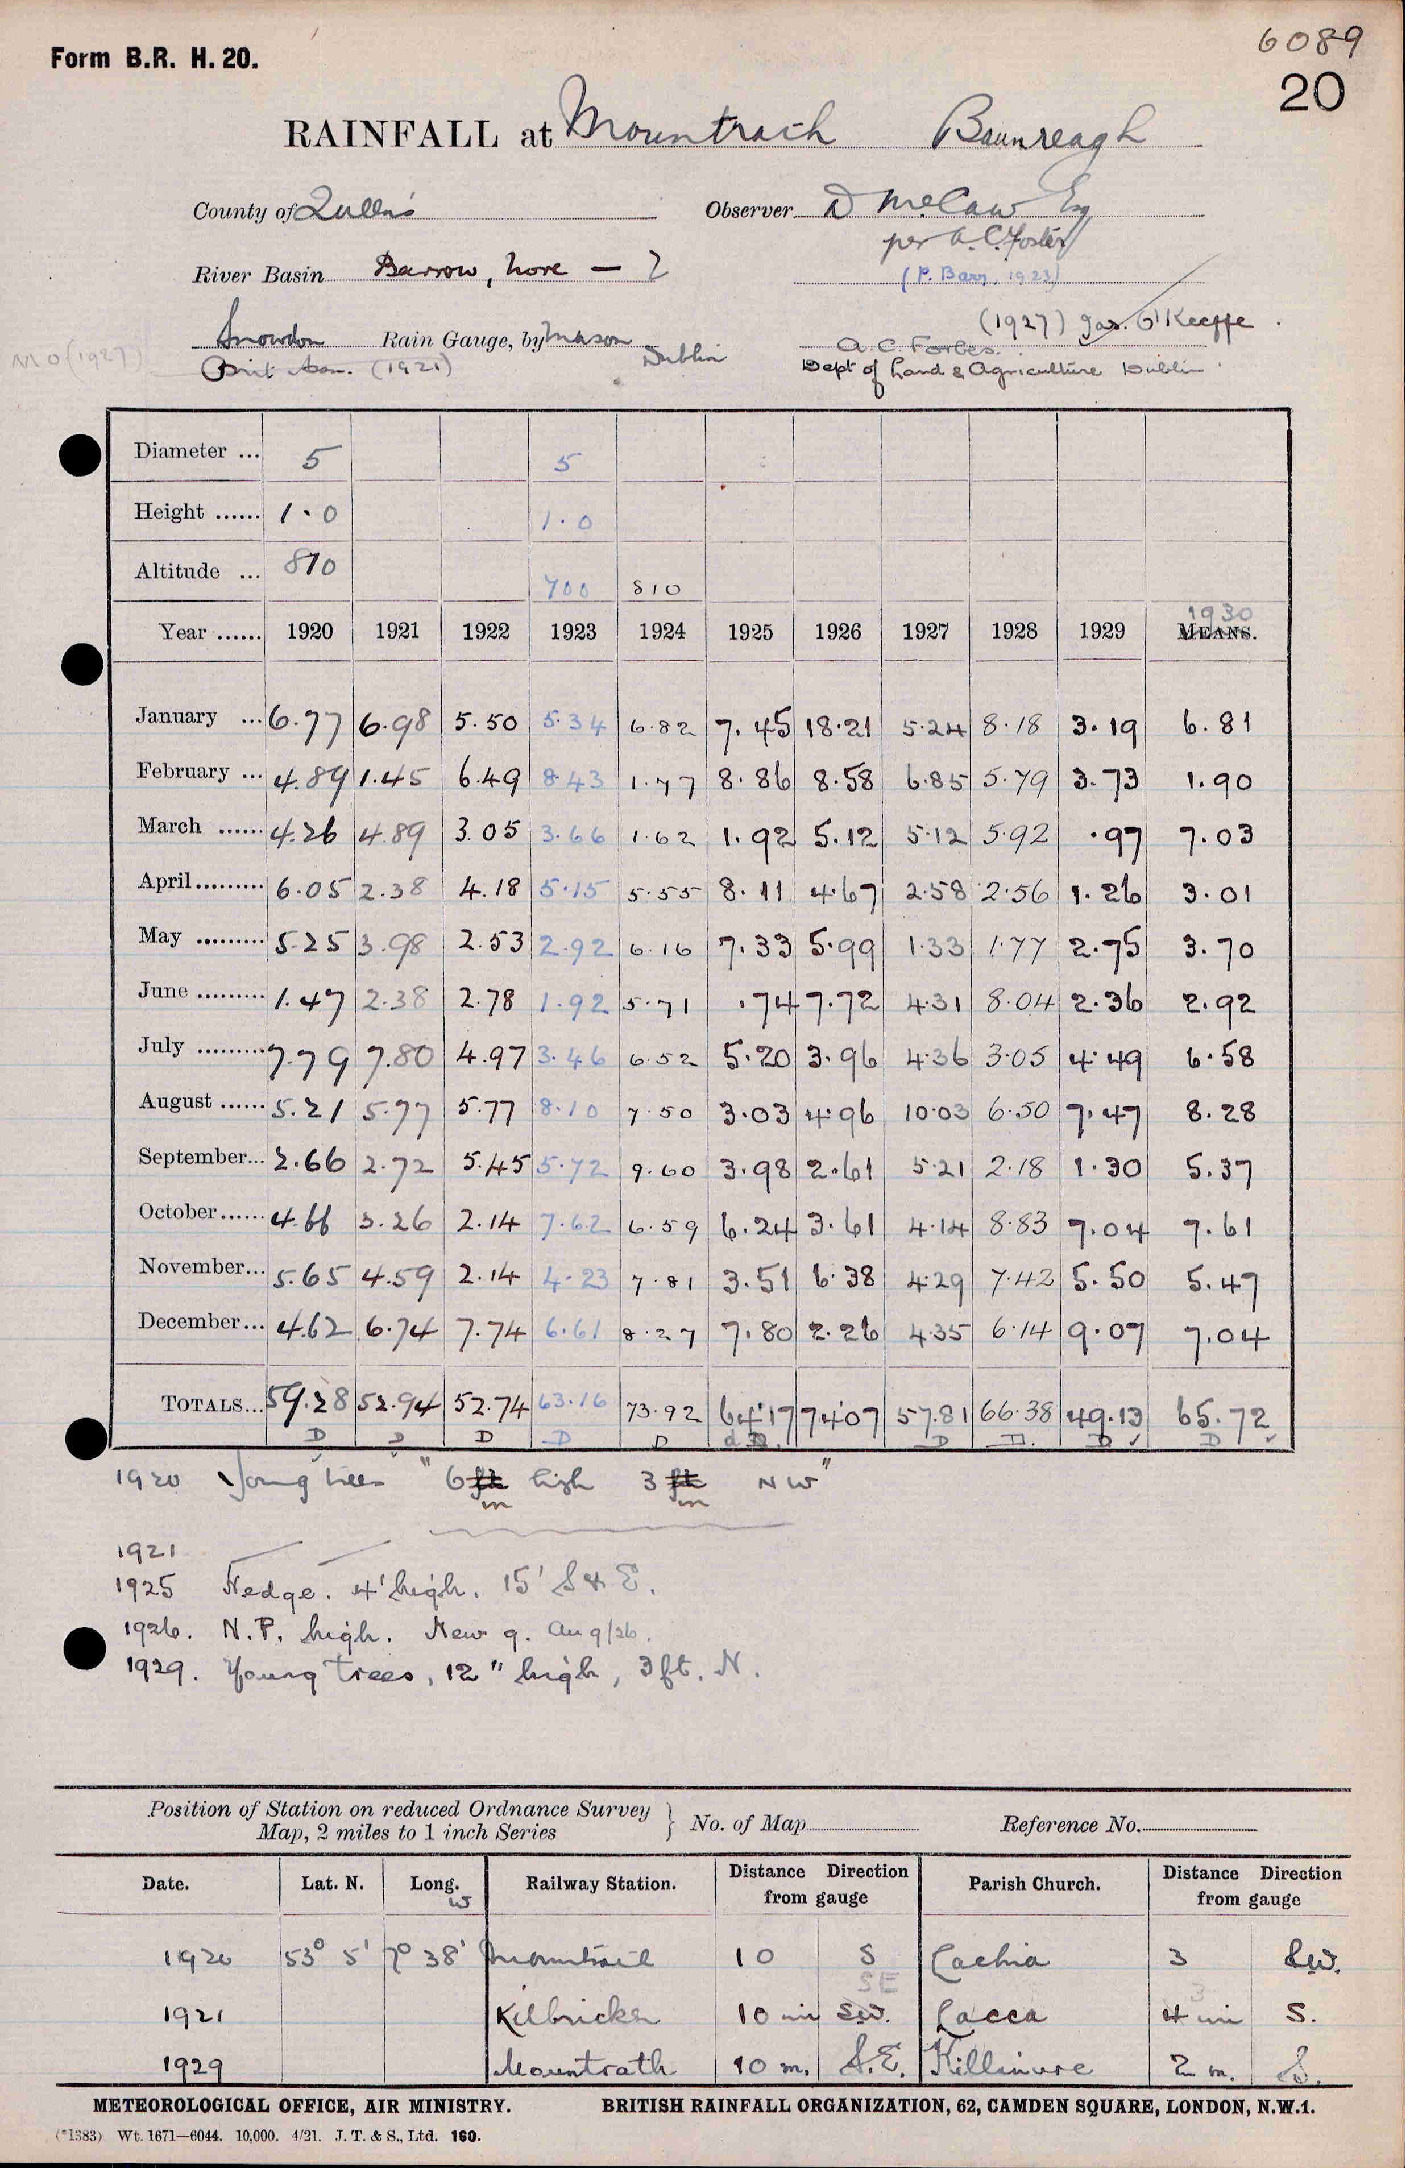 6089
Form B.R. H. 20.
20
RAINFALL at Mountrath Baunreagh
County of Observer D McCaw Esq
per A. C. Foster
River Basin Barrow, Nore — 2
(P. Barr, 1923)
(1927) Jas. O'Keeffe.
Snowdon Rain Gauge, by Mason Dublin
A. C. Forbes.
M O (1927) Brit Ass. (1921)
Dept of Land & Agriculture Dublin
Diameter ... 5 5
Height ...... 1.0 1.0
Altitude ... 810 700 810
Year ...... 1920 1921 1922 1923 1924 1925 1926 1927 1928 1929 MEANS. 1930
January ... 6.77 6.98 5.50 5.34 6.82 7.45 18.21 5.24 8.18 3.19 6.81
February ... 4.89 1.45 6.49 8.43 1.77 8.86 8.58 6.85 5.79 3.73 1.90
March ...... 4.26 4.89 3.05 3.66 1.62 1.92 5.12 5.12 5.92 .97 7.03
April ......... 6.05 2.38 4.18 5.15 5.55 8.11 4.67 2.58 2.56 1.26 3.01
May ......... 5.25 3.98 2.53 2.92 6.16 7.33 5.99 1.33 1.77 2.75 3.70
June ......... 1.47 2.38 2.78 1.92 5.71 .74 7.72 4.31 8.04 2.36 2.92
July ......... 7.79 7.80 4.97 3.46 6.52 5.20 3.96 4.36 3.05 4.49 6.58
August ...... 5.21 5.77 5.77 8.10 7.50 3.03 4.96 10.03 6.50 7.47 8.28
September... 2.66 2.72 5.45 5.72 9.60 3.98 2.61 5.21 2.18 1.30 5.37
October...... 4.66 3.26 2.14 7.62 6.59 6.24 3.61 4.14 8.83 7.04 7.61
November... 5.65 4.59 2.14 4.23 7.81 3.51 6.38 4.29 7.42 5.50 5.47
December... 4.62 6.74 7.74 6.61 8.27 7.80 2.26 4.35 6.14 9.07 7.04
TOTALS... 59.28 52.94 52.74 63.16 73.92 64.17 74.07 57.81 66.38 49.13 65.72
D D D D D d D. D D. D D
1920 Young trees "6 ft in high 3 ft in NW"
1921
1925 Hedge. 4' high. 15' S & E.
1926. N.P. high. New g. Aug/26.
1929. Young trees, 12" high, 3 ft. N.
Position of Station on reduced Ordnance Survey Map, 2 miles to 1 inch Series } No. of Map Reference No.
Date. Lat. N. Long. W Railway Station. Distance Direction from gauge Parish Church. Distance Direction from gauge
1920 53° 5' 7° 38' Mountrath 10 S 3 S.W.
SE 3
1921 Kilbricken 10 mi SW. Lacca 4 mi S.
1929 Mountrath 10 m. S.E. Killinure 2 m. S.
METEOROLOGICAL OFFICE, AIR MINISTRY. BRITISH RAINFALL ORGANIZATION, 62, CAMDEN SQUARE, LONDON, N.W.1.
(*1383) Wt. 1671—6044. 10,000. 4/21. J. T. & S., Ltd. 160.